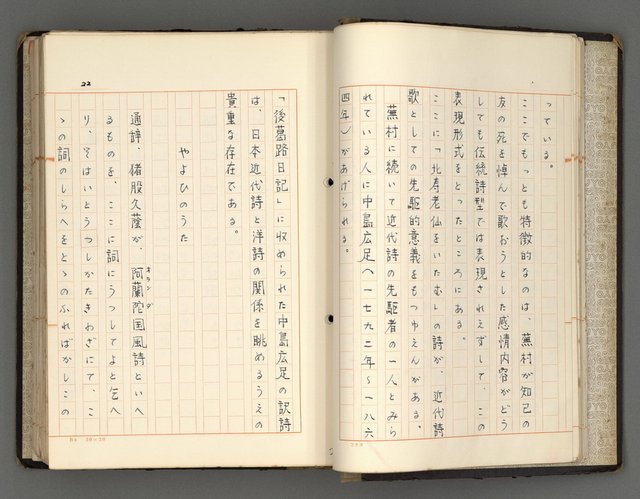 っている。
ここでもっとも特徴的なのは、蕪村が知己の
友の死を悼んで歌おうとした感情内容がどう
しても伝統詩型では表現されえずして、この
表現形式をとったところにある。
ここに「北寿老仙をいたむ」の詩が、近代詩
歌としての先駆的意義をもつゆえんがある。
蕪村に続いて近代詩の先駆者の一人とみら
れている人に中島広足(一七九二年~一八六
四年)があげられる。
22
「後葛路日記」に収められた中島広足の訳詩
は、日本近代詩と洋詩の関係を眺めるうえの
貴重な存在である。
やよひのうた
通辞、猪股久蔭が、阿蘭陀国風詩といへ
オランダ
るものを、ここに詞にうつしてよと乞へ
り、そはいとうつしがたきわざにて、こ
ゝの詞のしらへをとゝのふればかしこの
B4 20×20